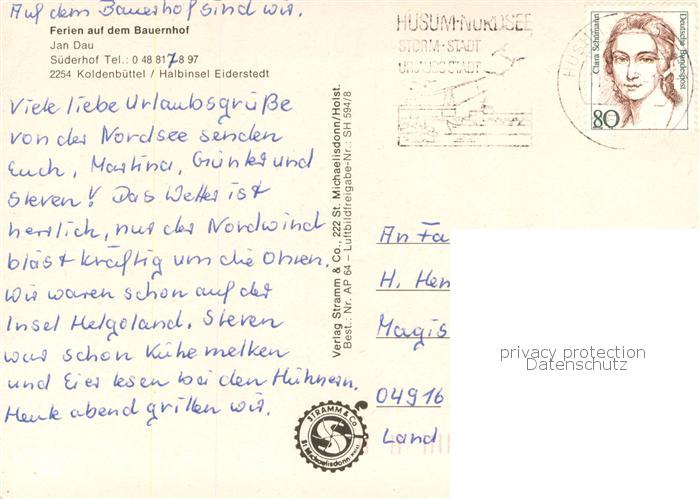 Auf dem Bauerhof sind wir.
Ferien auf dem Bauernhof
Jan Dau
Süderhof Tel.: 0 48 81 7 8 97
2254 Koldenbüttel / Halbinsel Eiderstedt
Viele liebe Urlaubsgrüße
von der Nordsee senden
Euch, Martina, Günter und
Steven! Das Wetter ist
herrlich, nur der Nordwind
bläst kräftig um die Ohren.
Wir waren schon auf der
Insel Helgoland. Steven
war schon Kühe melken
und Eier lesen bei den Hühnern.
Heute abend grillen wir.
Verlag Stramm & Co., 222 St. Michaelisdonn/Holst.
Best.: Nr. AP 64 – Luftbildfreigabe-Nr.: SH 594/8
STRAMM & Co
St. Michaelisdonn Holst.
HUSUM-NORDSEE
STORM-STADT
URLAUBSSTADT
HUSUM
Clara Schumann
Deutsche Bundespost
80
An Fa
H. Hen
Magis
04916
Land
privacy protection
Datenschutz